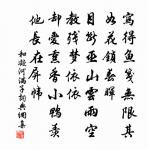 寫得魚箋無限其
如花鎖春暉
目斷巫山雲雨空
教殘夢依依
却愛熏香小鴨羨
他長在屏幃
和凝河滿子詞典網集